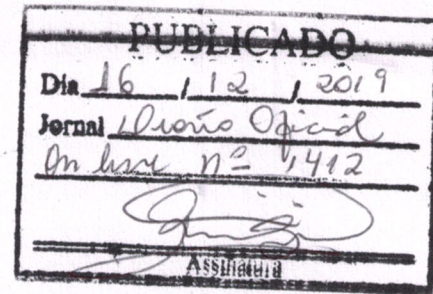 PUBLICADO
Dia 16 / 12 / 2019
Jornal Diário Oficial
On line nº 1412
Assinatura